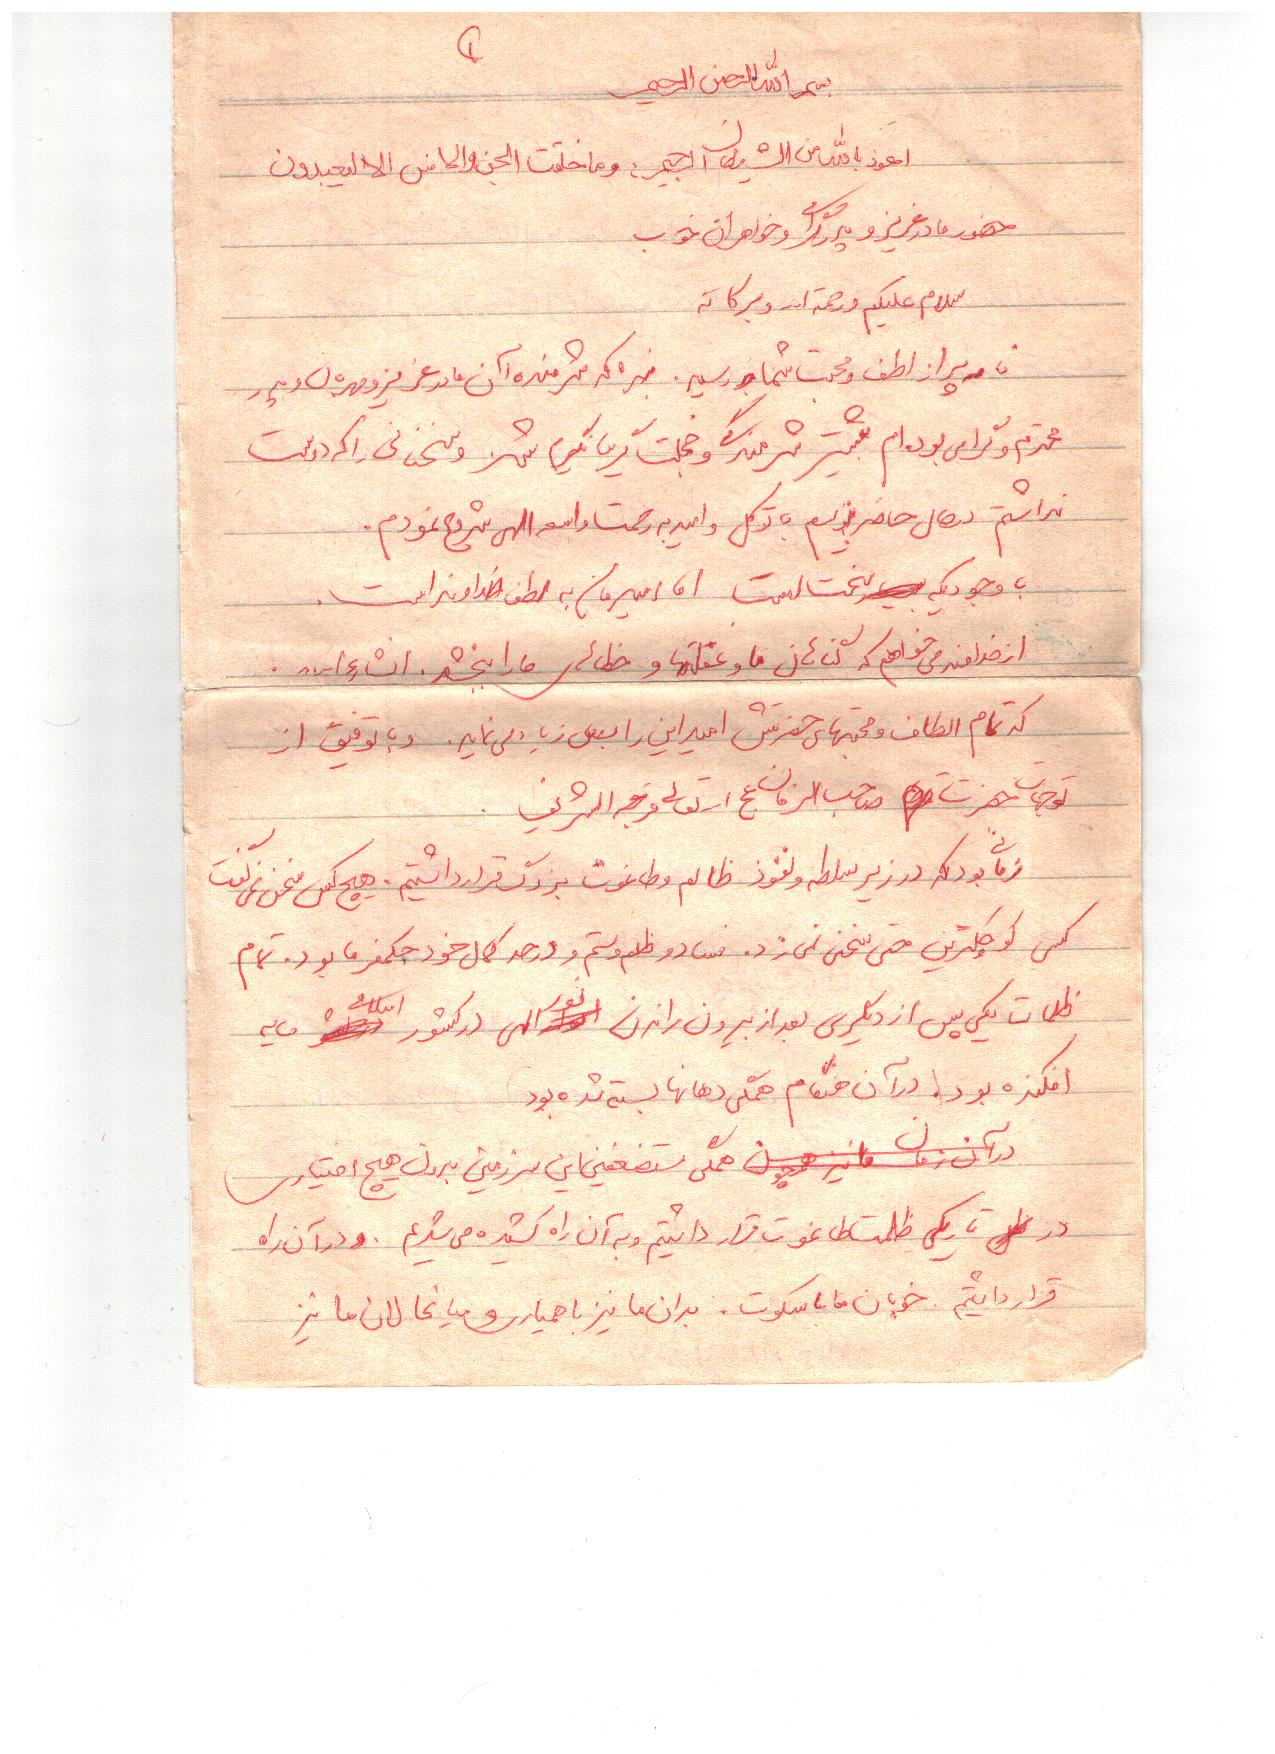 ۱
بسم الله الرحمن الرحیم
اعوذ بالله من الشیطان الرجیم: وما خلقت الجن والانس الا لیعبدون
حضور مادر عزیز و پدر گرامی و خواهران خوب
سلام علیکم ورحمة ا... وبرکاته
نامه پر از لطف و محبت شما رسید. بنده که شرمنده آن مادر عزیز و مهربان و پدر
محترم و گرامی بوده ام بیشتر شرمندگی و خجلت گریبانگیرم شد و سخنانی را که دوست
نداشتم در حال حاضر بنویسم با توکل و امید به رحمت واسعه الهی شروع نمودم.
با وجودیکه سخت است اما امیدمان به لطف خداوند است.
از خداوند می خواهم که گناهان ما و غفلتها و خطاهای ما را ببخشد. انشاءا...
که تمام الطاف و محبتهای حضرتش امید این را بسی زیاد می نماید. و با توفیق از
توجهات حضرت صاحب الزمان عج ا... تعالی فرجه الشریف.
زمانی بود که در زیر سلطه و نفوذ ظالم و طاغوت بزرگ قرار داشتیم. هیچ کس سخن نمی گفت
کسی کوچکترین حتی سخنی نمی زد. فساد و ظلم و ستم و در حد کمال خود حکمفرما بود. تمام
ظلمات یکی پس از دیگری بعد از بیرون راندن نور الهی در کشور اسلامی سایه
افکنده بود. در آن هنگام همگی دهانها بسته شده بود
در آن زمان ما نیز همچون همگی مستضعفین این سرزمین بدون هیچ اختیاری
در تاریکی ظلمت طاغوت قرار داشتیم و به آن راه کشیده می شدیم. و در آن راه
قرار داشتیم. خوبان ما با سکوت. بدان ما نیز با همیاری و میانحالان ما نیز